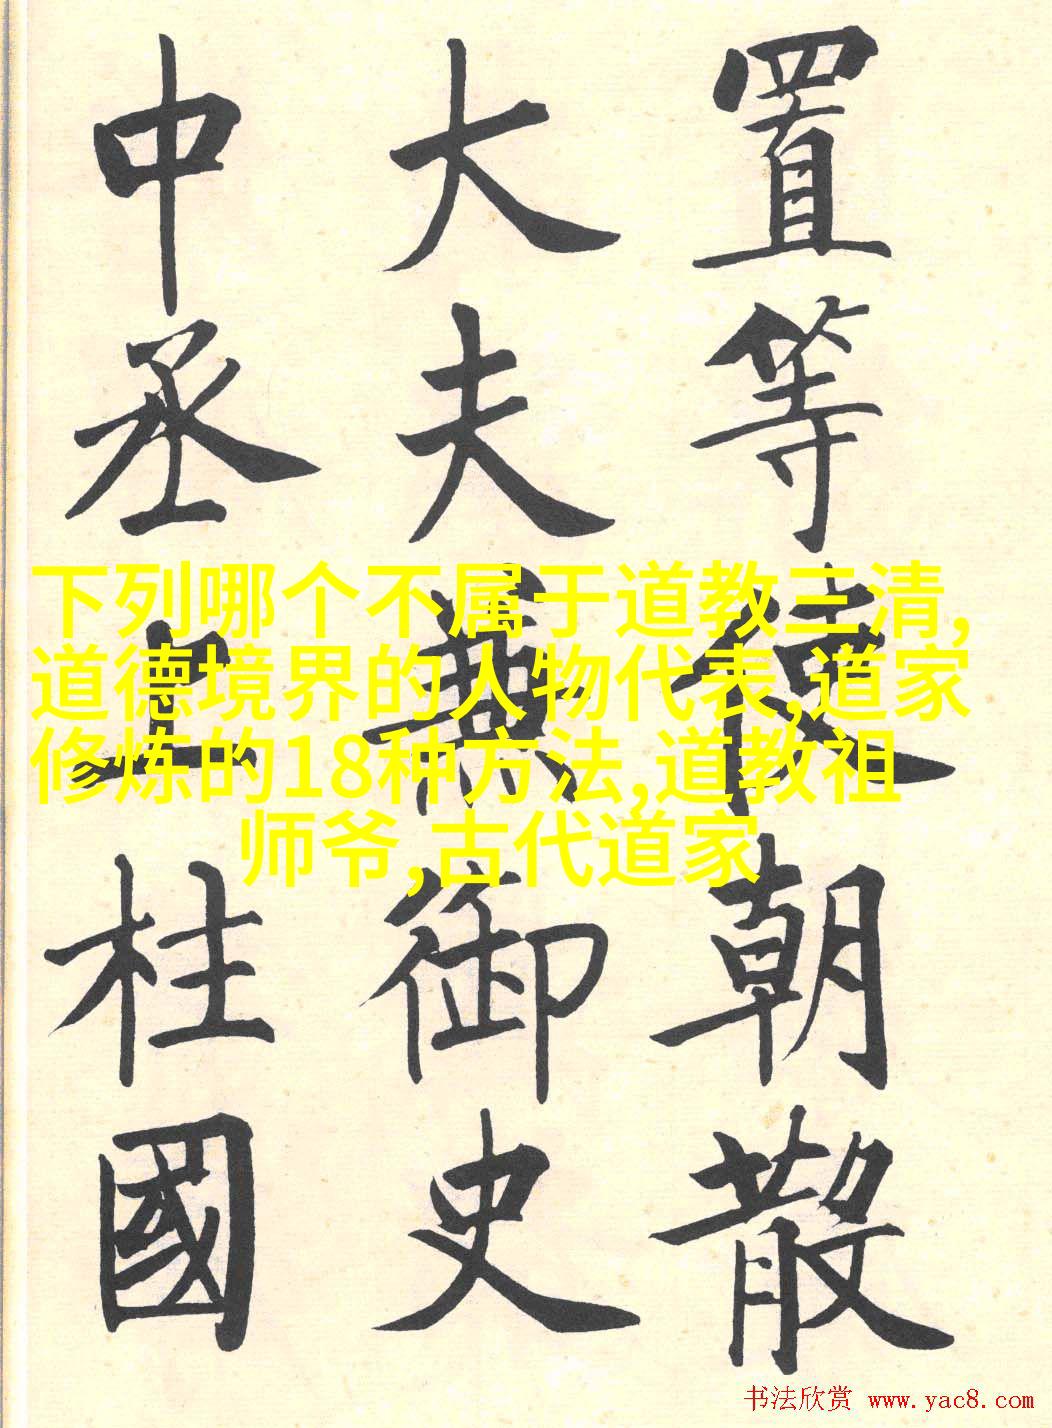 置等使朝散
大夫兼御史
中丞上柱國
下列哪个不属于道教三清,
道德境界的人物代表,道家
修炼的18种方法,道教祖
师爷,古代道家
书法欣赏 www.yac8.com